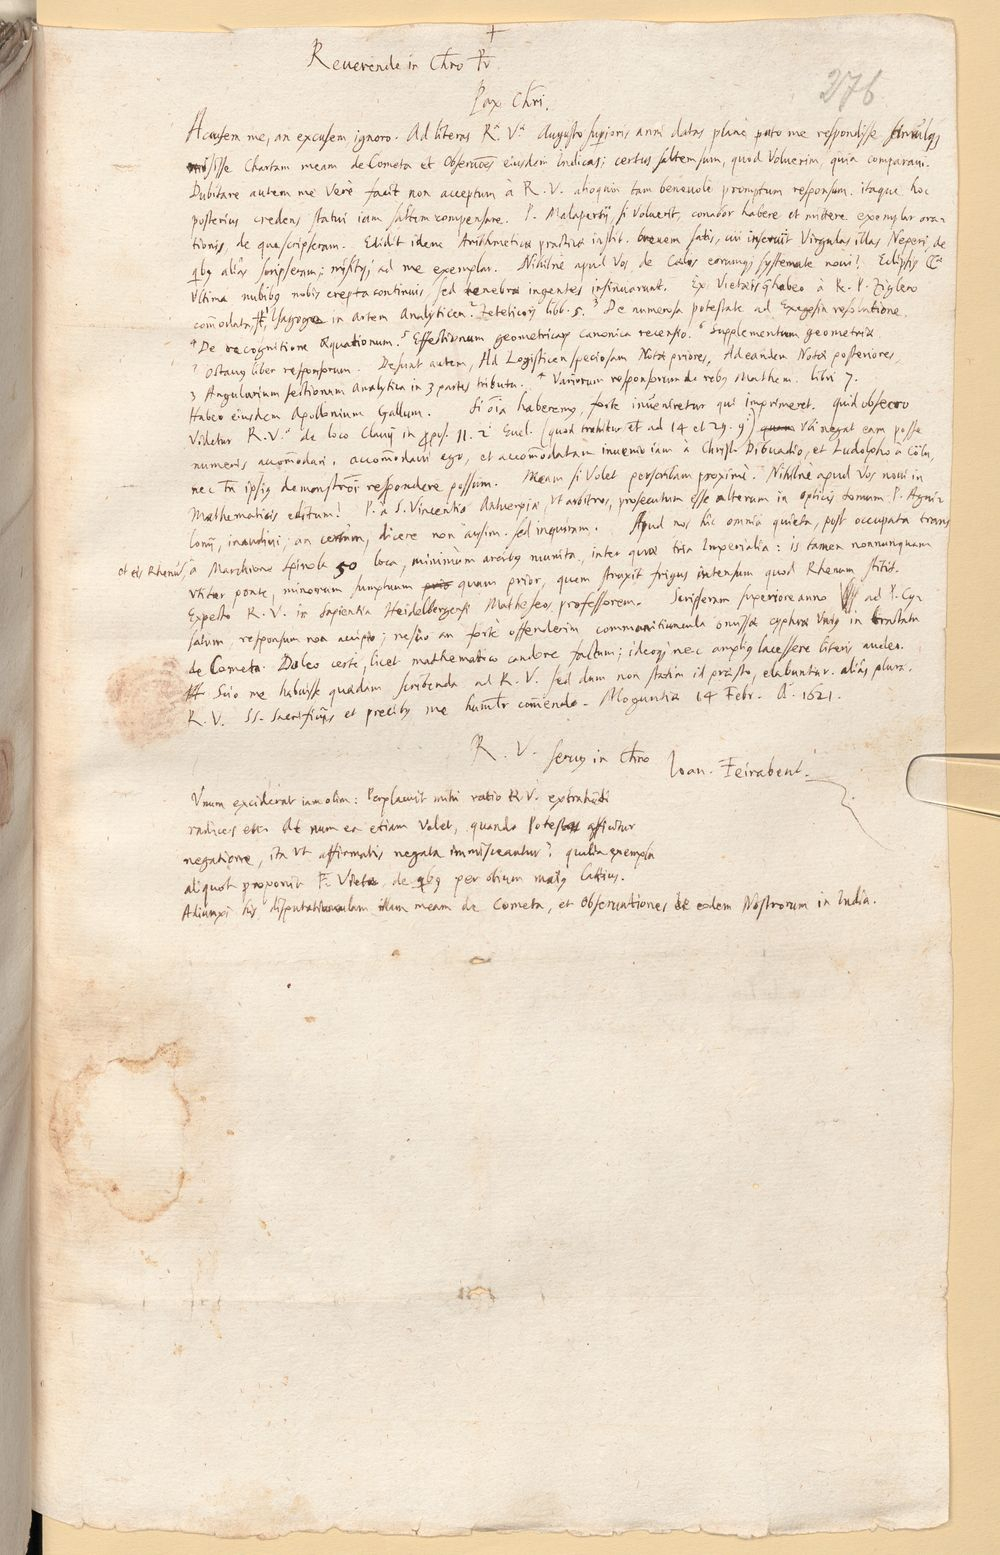 +
Reuerende in Chro Pr
Pax Chri.
276
Accusem me, an excusem ignoro. Ad literas Ræ. Væ. Augusto superioris anni datas planè puto me respondisse simulq3
misisse Chartam meam de Cometa et Obseruões eiusdem Indicas; certus saltem sum, quod voluerim, quia comparaui.
Dubitare autem me verè facit non acceptum à R. V. alioquin tam beneuolè promptum responsum. itaque hoc
posterius credens statui iam saltem compensare. P. Malapertij, si voluerit, conabor habere et mittere exemplar ora-
tionis, de qua scripseram. Edidit idem Arithmeticæ practicæ instit. breuem satis, cui inseruit Virgulas illas Neperi, de
qbq aliàs scripserim; misitq3 ad me exemplar. Nihilnè apud Vos de Cælos eorumq3 systemate noui? Eclipsis
Vltima nubibq nobis erepta continuis sed tenebræ ingentes insinuarunt. Ex Vietæis habeo à R. P. Ziglero
comõdata, Isagoge in artem Analyticen. 2 Zeteticorũ libb. 5. 3 De numerosa potestate ad Exegesin resolutione.
4 De recognitione Æquationum. 5 Effectionum geometricarũ canonica recensio. 6 Supplementum geometriæ
7 Octauq liber responsorum. Desunt autem, Ad Logisticen speciosam Notæ priores, Ad eandem Notæ posteriores,
3 Angularium sectionum Analytica in 3 partes tributa. 4 Variorum responsorum de rebq Mathem. libri 7.
Habeo eiusdem Apollonium Gallum. Si oĩa haberemq, forte inueniretur qui imprimeret. quid obsecro
Videtur R. V.æ de loco Clauij in ppos. 11. 2i Eucl. (quod trahitur et ad 14 et 29. 9i) quam vbi negat eam posse
numeris accom̃odari. accom̃odaui ego, et accom̃odatam inuenio iam à Christ. Dibuadio, et Ludolpho à Cöln,
nec tñ ipsiq demonstrõi respondere possum. Meam si Volet perscribam proximè. Nihilnè apud Vos noui in
Mathematicis editum? P. à S. Vincentio Antuerpiæ, vt arbitror, prosecutum esse alterum in opticis tomum P. Aguil-
lonij, inaudiui; an certum, dicere non ausim. sed inquiram. Apud nos hic omnia quieta, post occupata trans
et cis Rhenũ à Marchione Spinola 50 loca, minimùm arcibq munita, inter quæ tria Imperialia: is tamen nonnunquam
vtitur ponte, minorum sumptuum quàm prior, quem struxit frigus intensum quod Rhenum stitit.
Expecto R. V. in Sapientia Heidelbergensi Matheseos professorem. Scripseram superiore anno ad P. Cy-
satum, responsum non accipio; nescio an fortè offenderim commonitiuncula omissæ cyphræ vniq in tractatu
de Cometa. Doleo certe, licet mathematico candore factum; ideoq3 nec ampliq lacessere literis audeo.
Scio me habuisse quædam scribenda ad R. V. sed dum non statim id præsto, elabuntur. aliàs plura.
R. V. SS. Sacrificijs et precibq me humlr com̃endo. Moguntiæ 14 Febr. Aº. 1621.
R. V. seruq in Chro Ioan. Feirabent.
Vnum exciderat iam olim: Perplacuit mihi ratio R. V. extrahẽdi
radices etc. At num ea etiam valet, quando Potestas afficitur
negatione, ita vt affirmatis negata immisceantur? qualia exempla
aliquot proponit Fr. Vieta, de qbq per otium maiq latius.
Adiunxi his disputatiunculam illam meam de Cometa, et Obseruationes de eodem Nostrorum in India.